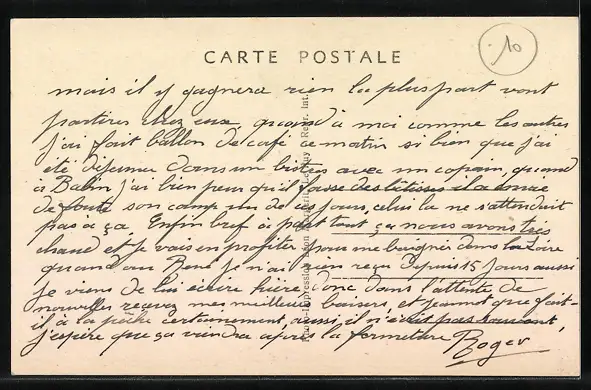 10
CARTE POSTALE
mais il y gagnera rien la plus part vont
partires chez eux, quand à moi comme les autres
j'ai fait ballon de café ce matin si bien que j'ai
été déjeuner dans un avec un copain, quand
à j'ai bien peur qu'il fasse des bêtises il a envie
de foutre son camp un de ces jours, celui la ne s'attendait
pas à ça. Enfin bref à part tout ça nous avons très
chaud et je vais en profiter pour me baigner dans la Loire
quand au René je n'ai rien reçu depuis 15 jours aussi
je viens de lui écrire hière donc dans l'attente de
nouvelles recevez mes meilleurs baisers et Jeannot que fait-
il à la pêche certainement, aussi il n'écrit pas souvent,
j'espère que ça viendra après la fermeture Roger